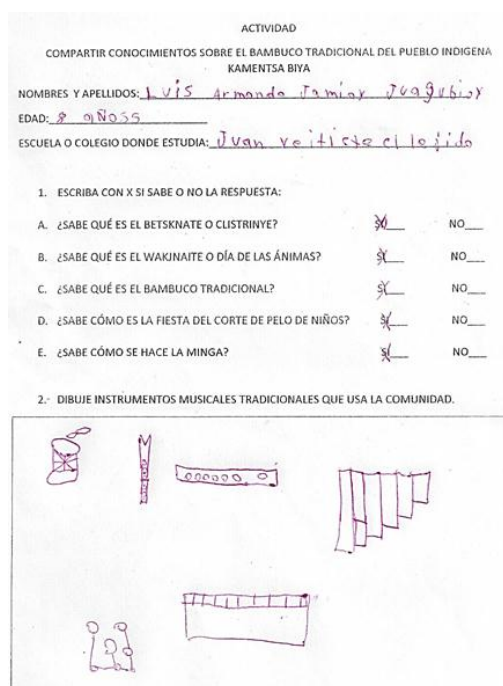 ACTIVIDAD
COMPARTIR CONOCIMIENTOS SOBRE EL BAMBUCO TRADICIONAL DEL PUEBLO INDIGENA
KAMENTSA BIYA
NOMBRES Y APELLIDOS: LUIS Armando Jamioy Juagibioy
EDAD: 8 añoss
ESCUELA O COLEGIO DONDE ESTUDIA: Juan
1. ESCRIBA CON X SI SABE O NO LA RESPUESTA:
A. ¿SABE QUÉ ES EL BETSKNATE O CLISTRINYE? SI___ NO___
B. ¿SABE QUÉ ES EL WAKJNAITE O DÍA DE LAS ÁNIMAS? SI___ NO___
C. ¿SABE QUÉ ES EL BAMBUCO TRADICIONAL? SI___ NO___
D. ¿SABE CÓMO ES LA FIESTA DEL CORTE DE PELO DE NIÑOS? SI___ NO___
E. ¿SABE CÓMO SE HACE LA MINGA? SI___ NO___
2.- DIBUJE INSTRUMENTOS MUSICALES TRADICIONALES QUE USA LA COMUNIDAD.